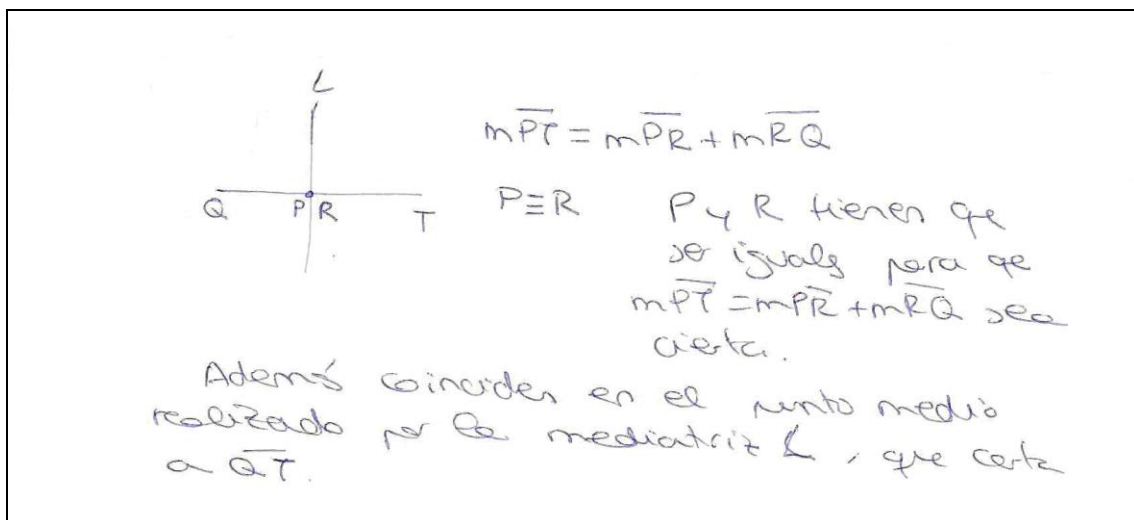 L
mPT = mPR + mRQ
Q P R T
P≡R P y R tienen que
ser iguals para qe
mPT = mPR + mRQ sea
cierta.
Además coinciden en el punto medio
realizado por la mediatriz L, que corta
a QT.